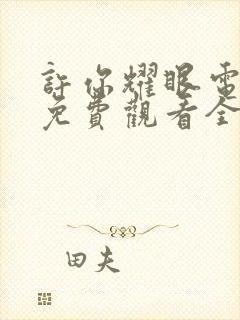 許你耀眼電
免費觀看全
田夫